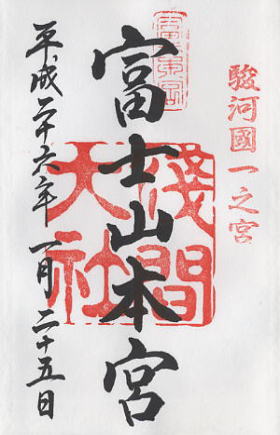 駿河國一之宮
富士山本宮
淺間
大社
平成二十六年一月二十五日